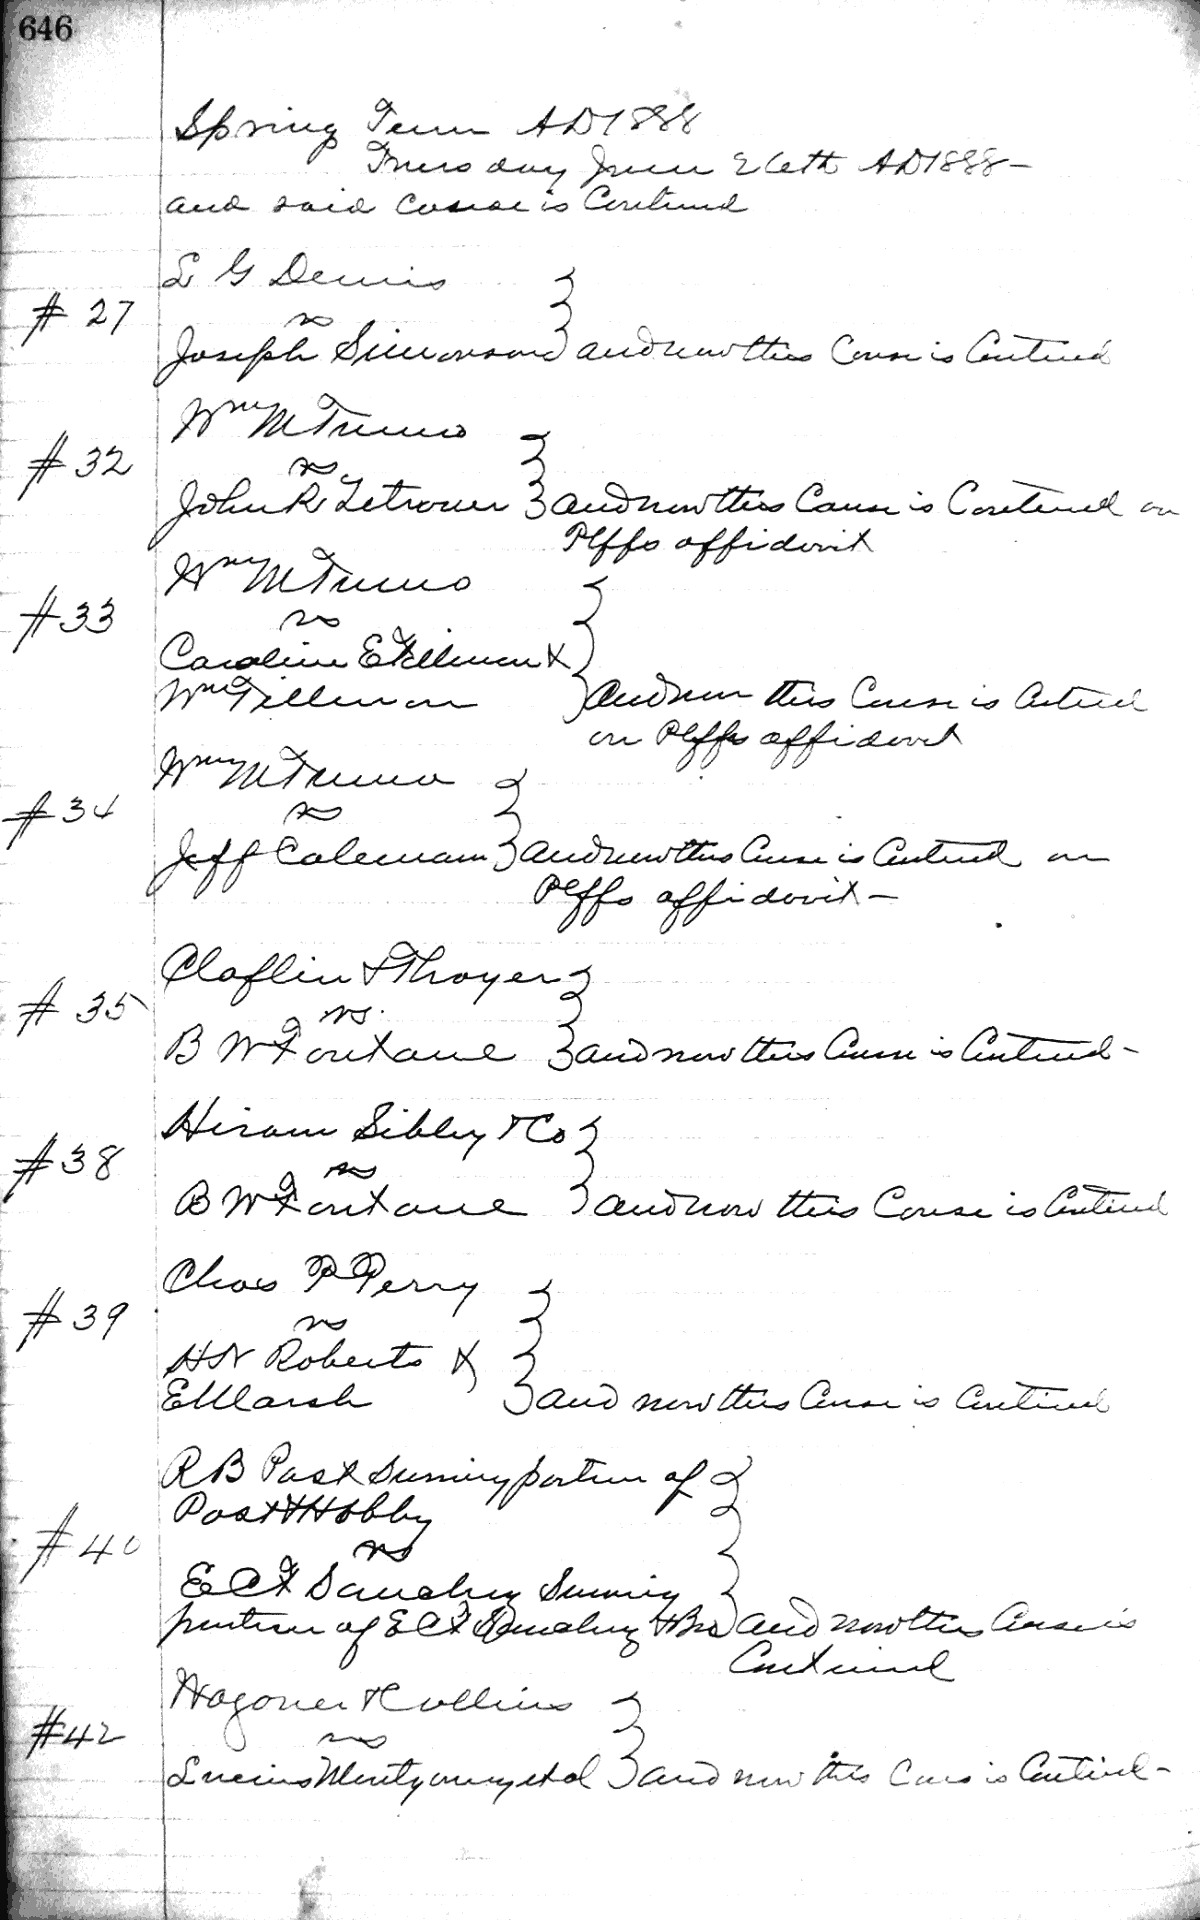 646
Spring Term AD 1888
Thursday June 26th AD 1888 -
and said cause is Continued
L G Dennis
# 27
vs
Joseph Simonson and now this Cause is Continued
Wm M
# 32
vs
John R and now this Cause is Continued on
Plffs affidavit
Wm M
# 33
vs
Caroline E Tillman &
Wm Tillman and now this Cause is Continued
on Plffs affidavit
Wm M
# 34
vs
Jeff Coleman and now this Cause is Continued on
Plffs affidavit -
Claflin & Thayer
# 35
vs.
B W Fontane and now this Cause is Continued -
Hiram Sibley & Co
# 38
vs
B W Fontane and now this Cause is Continued
Chas P Perry
# 39
vs
H N Roberts &
E Marsh and now this Cause is Continued
R B Post Surviving partner of
Post & Hobby
# 40
vs
E C F Sanchez Surviving
partner of E C F Sanchez & Bro and now this Cause is
Continued
Wagoner & Collins
# 42
vs
Lucius Montgomery et al and now this Caus is Continued -